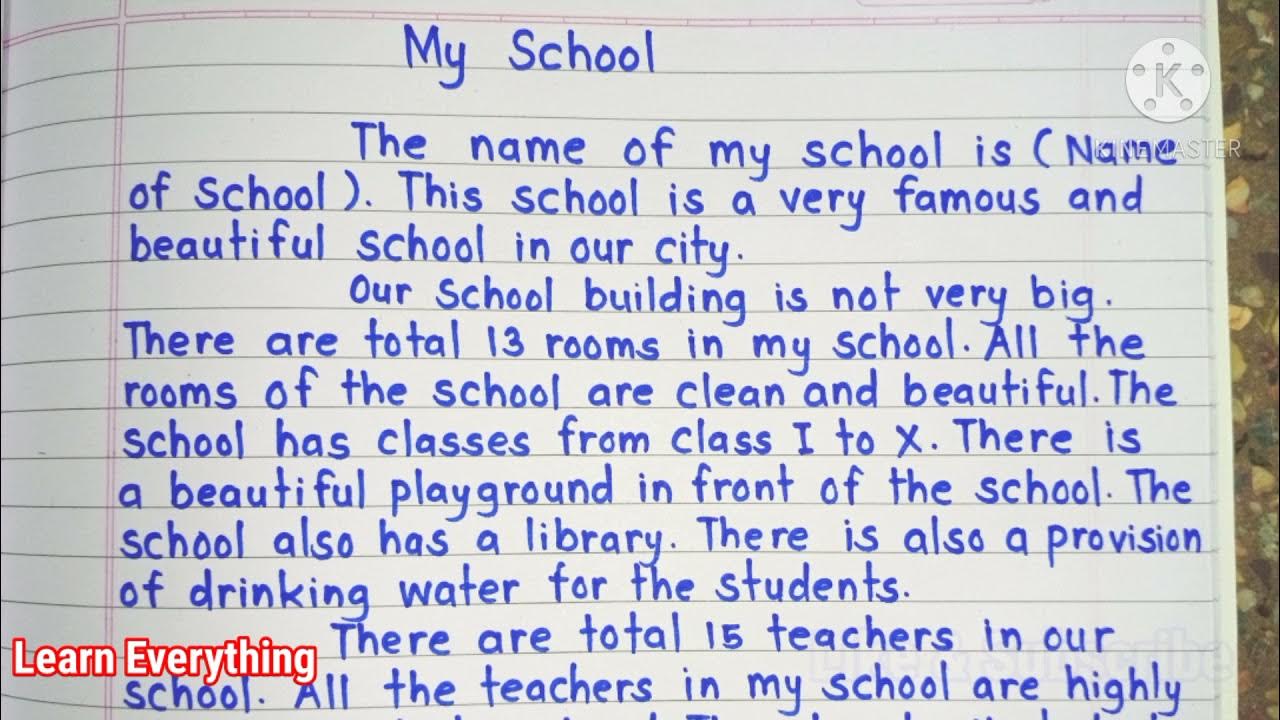 My School
The name of my school is ( Name
of School ). This school is a very famous and
beautiful school in our city.
Our school building is not very big.
There are total 13 rooms in my school. All the
rooms of the school are clean and beautiful. The
school has classes from class I to X. There is
a beautiful playground in front of the school. The
school also has a library. There is also a provision
of drinking water for the students.
There are total 15 teachers in our
school. All the teachers in my school are highly
K
KINEMASTER
Learn Everything
Like & Subscribe